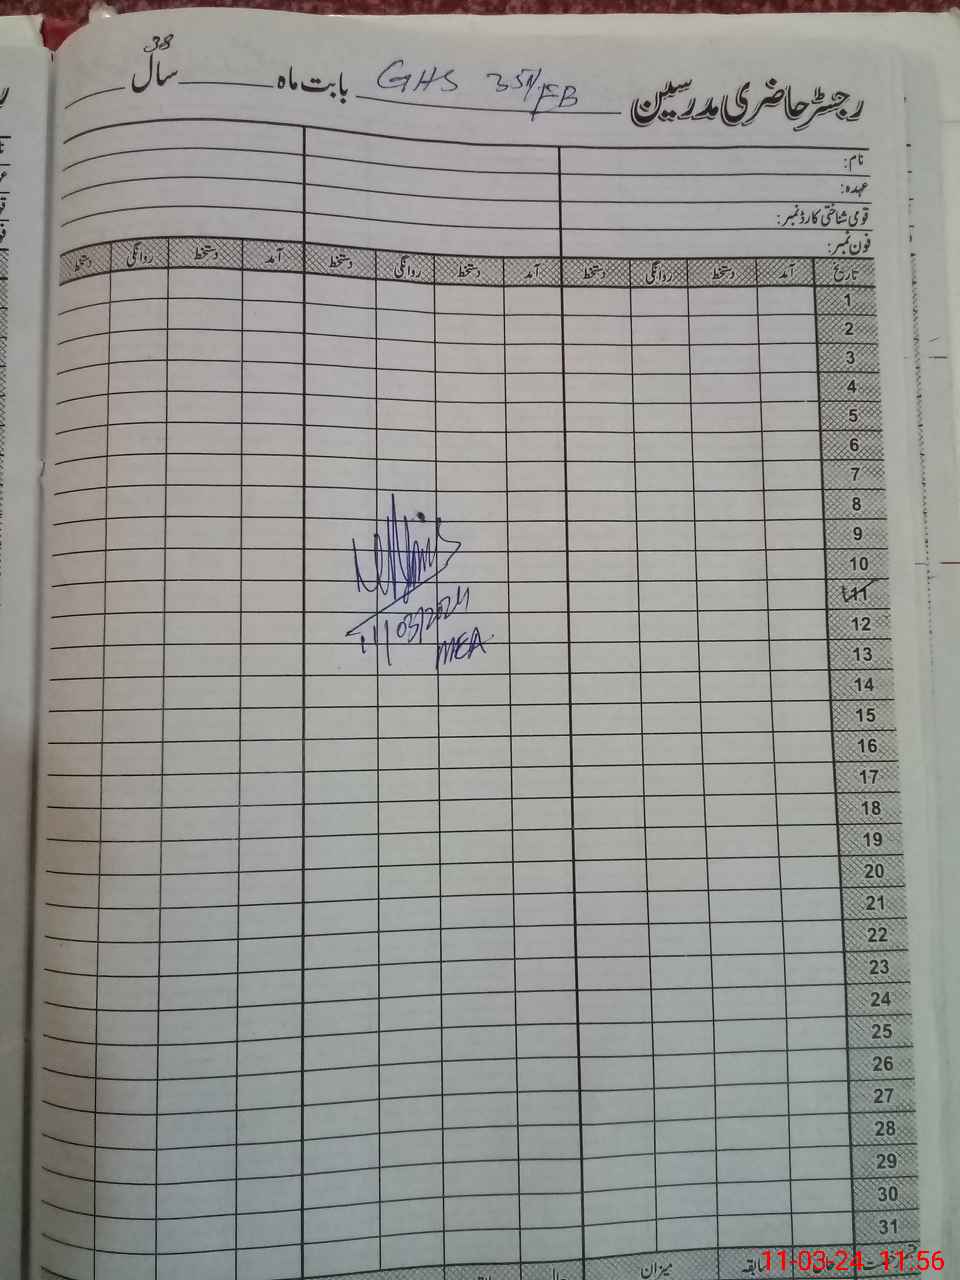 38
رجسٹر حاضری مدرسین GHS 351/EB بابت ماہ سال
نام:
عہدہ:
قومی شناختی کارڈ نمبر:
فون نمبر:
تاریخ آمد دستخط روانگی دستخط آمد دستخط روانگی دستخط آمد دستخط روانگی دستخط
1
2
3
4
5
6
7
8
9
10
11
12
13
14
15
16
17
18
19
20
21
22
23
24
25
26
27
28
29
30
31
11/03/2024
MEA
میزان
11-03-24 11:56